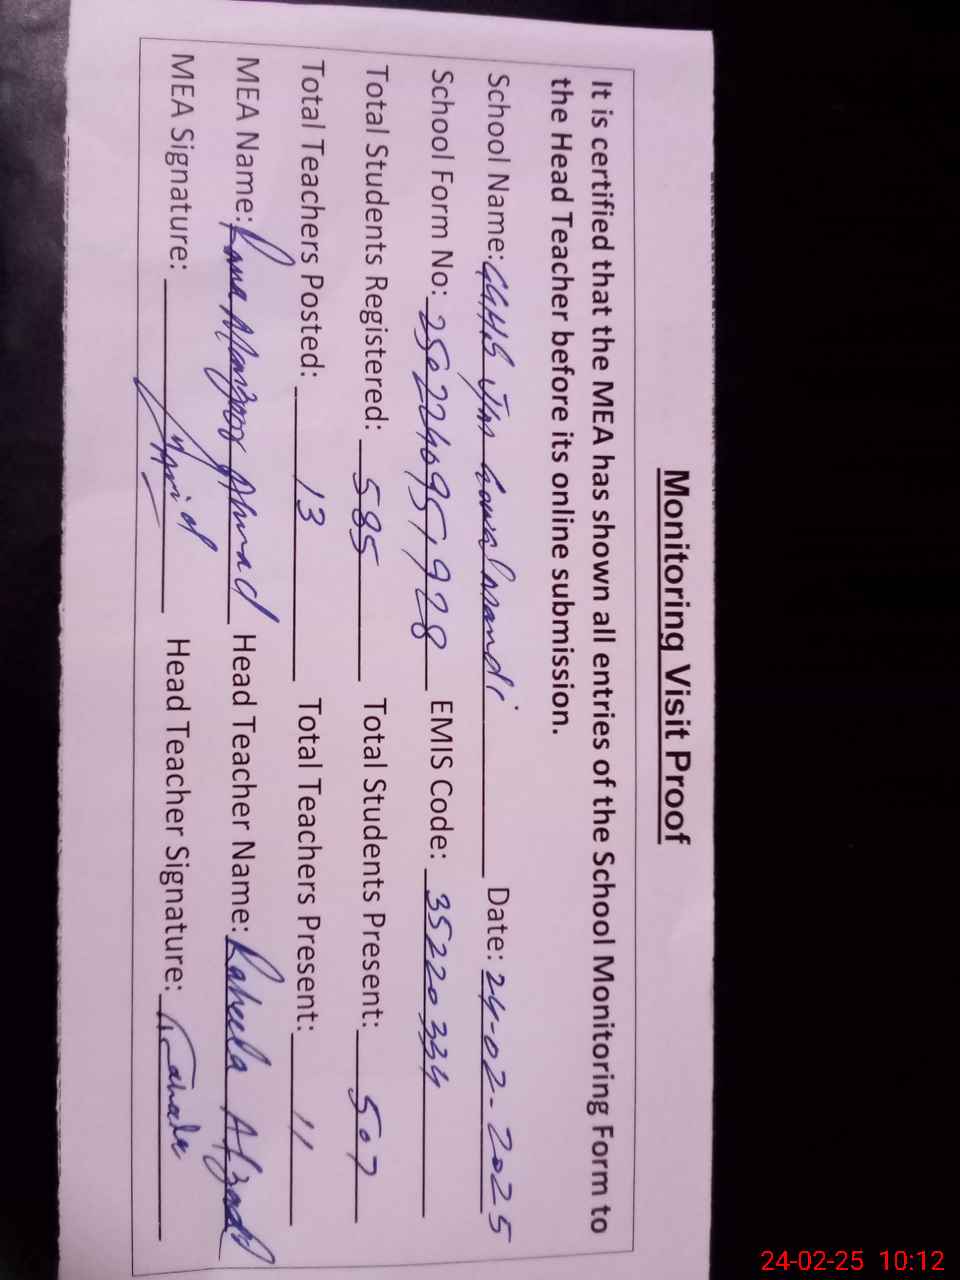 Monitoring Visit Proof
It is certified that the MEA has shown all entries of the School Monitoring Form to
the Head Teacher before its online submission.
School Name: GGHS Date: 24-02-2025
School Form No: EMIS Code: 35220334
Total Students Registered: 585 Total Students Present: 507
Total Teachers Posted: 13 Total Teachers Present: 11
MEA Name: Rana Ahmad Head Teacher Name: Raheela Afzaal
MEA Signature: Head Teacher Signature:
24-02-25 10:12